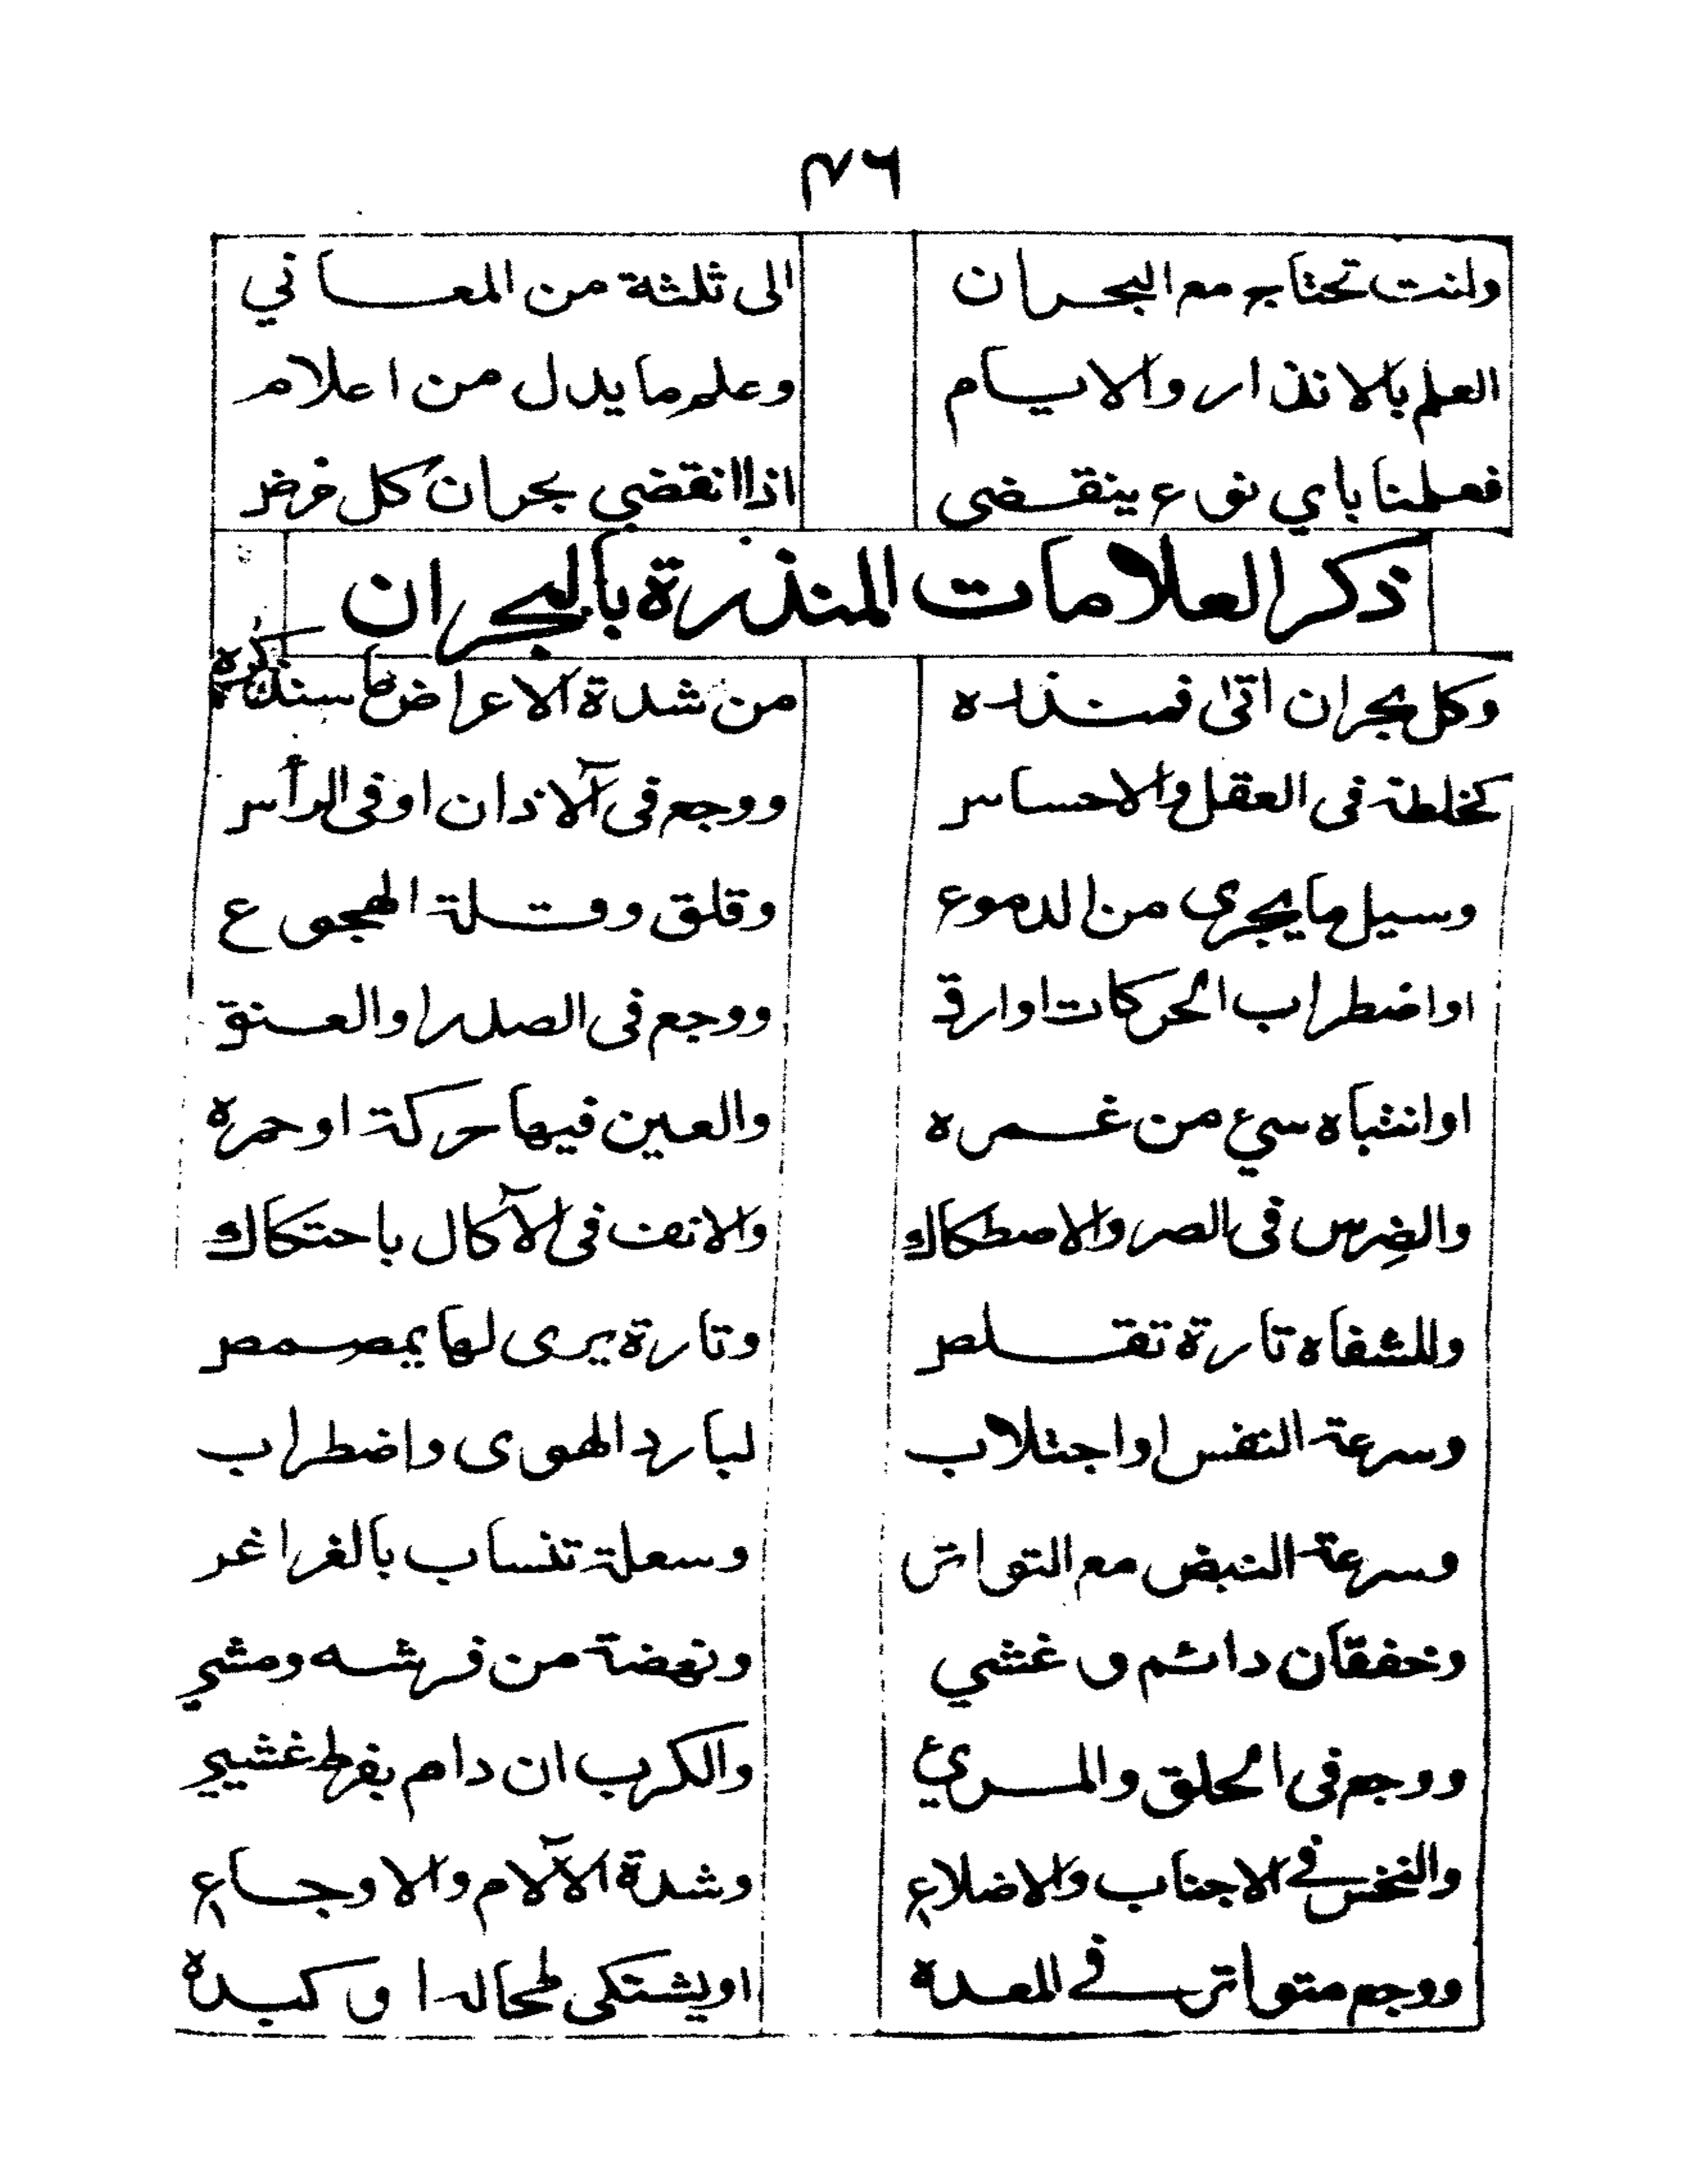 ٤٦
ولنت تحتاج مع البحران الى ثلثة من المعاني
العلم بالانذار والايام وعلم ما يدل من اعلام
فعلمنا باي نوع ينقضي اذا انقضي بحران كل مرض
ذكر العلامات المنذرة بالبحران
وكل بحران اتى فمنذره من شدة الاعراض ما سنذكره
كخلطة فى العقل والاحساس ووجع فى الآذان او فى الرأس
وسيل ما يجرى من الدموع وقلق وقلة الهجوع
او اضطراب الحركات او ارق ووجع فى الصدر او العنق
او انتباه سيء من غمره والعين فيها حركة او حمره
والضرس فى الصر والاصطكاك والانف فى الآكال باحتكاك
وللشفاه تارة تقلص وتارة يرى لها يمصمص
وسرعة النفس او اجتلاب لبارد الهوى واضطراب
وسرعة النبض مع التواتر وسعلة تنساب بالغراغر
وخفقان دائم وغشي ونهضة من فرشه ومشي
ووجع فى الحلق والمريء والكرب ان دام بفرط غشيي
والنخس في الاجناب والاضلاع وشدة الآلام والاوجاع
ووجع متواتر في المعده او يشتكى طحاله او كبده